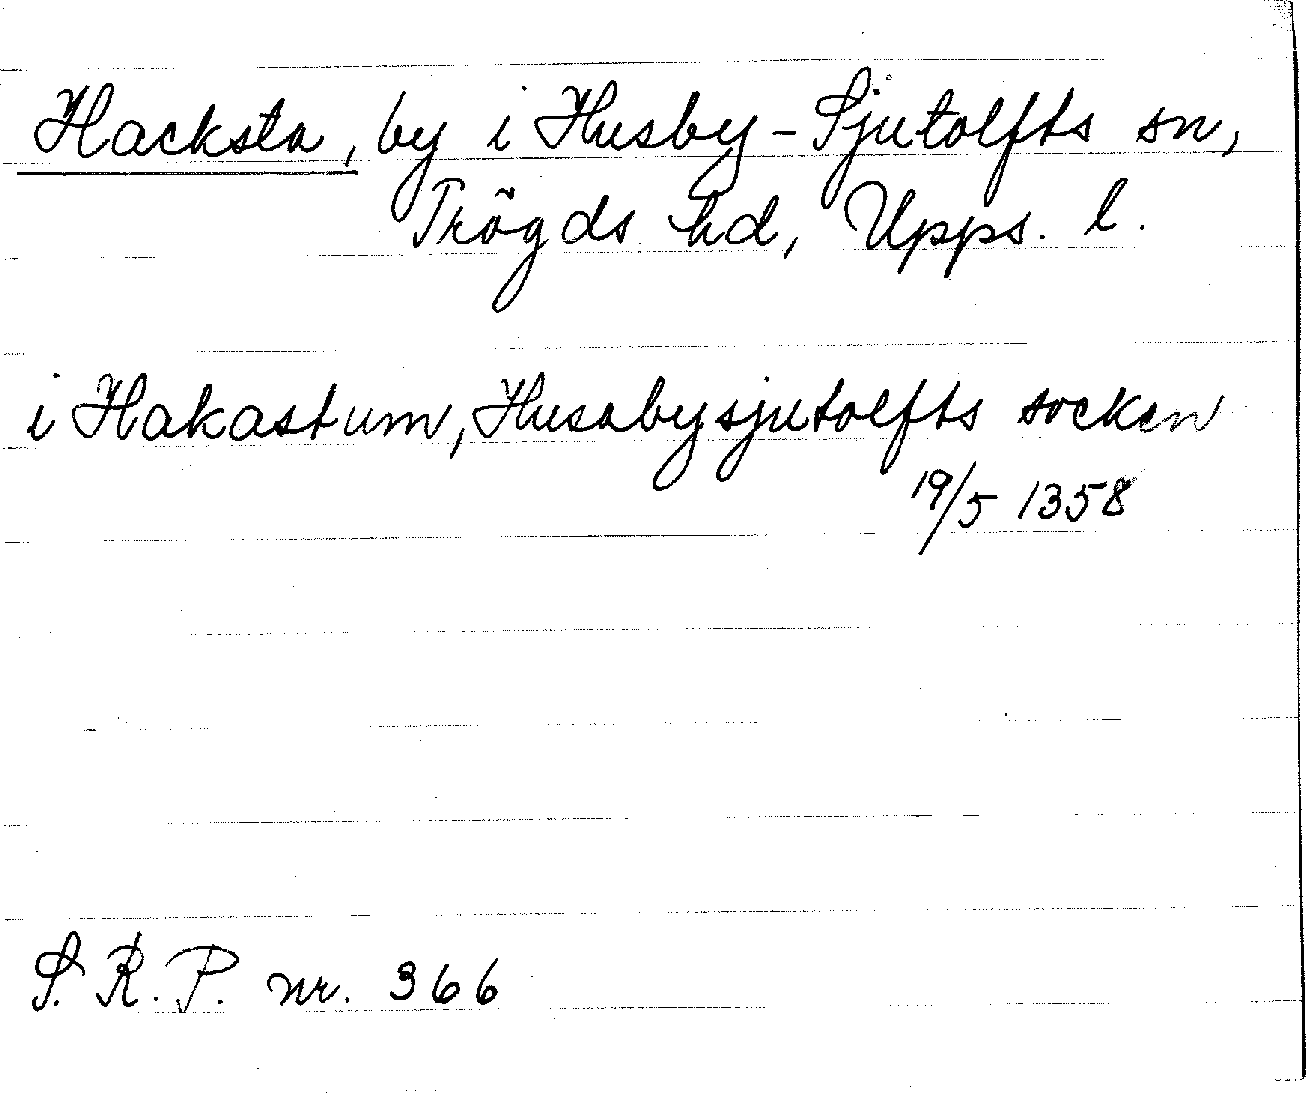 Hacksta, by i Husby-Sjutolfts sn,
Trögds hd, Upps. l.
i Hakastum, Husabysjutolfts socken
19/5 1358
S. R. P. nr. 366